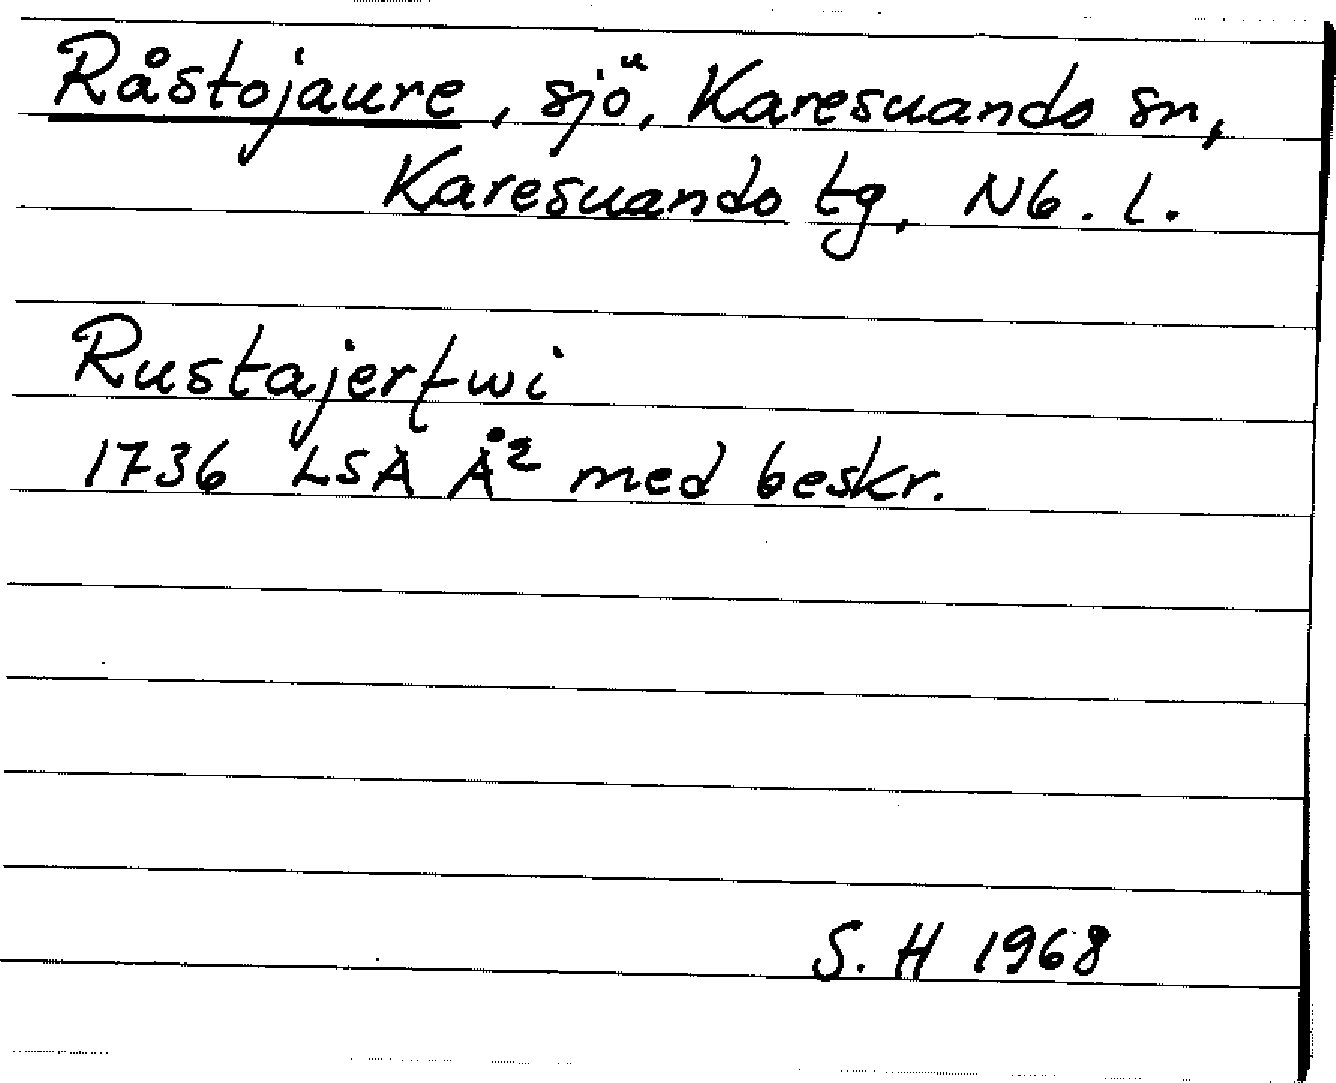 Råstojaure, sjö, Karesuando sn,
Karesuando tg, Nb. l.
Rustajertwi
1736 LSA Å² med beskr.
S. H 1968